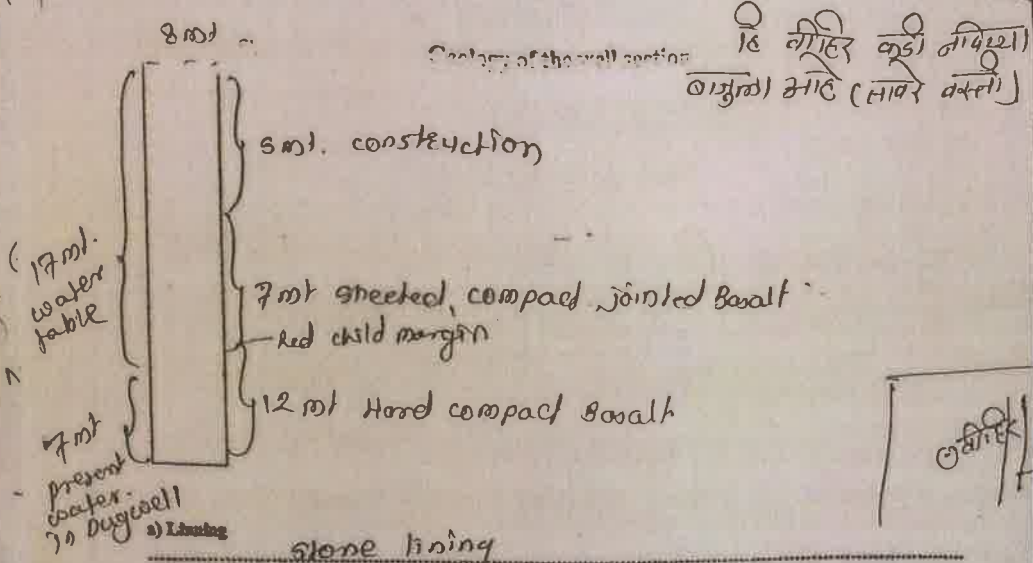 8 mt
Geology of the well section
हि वीहिर कुडी नदिच्या
बाजुला आहे (सावरे वस्ती)
5 mt. construction
17 mt.
water
table
7 mt sheeted, compact jointed Basalt
Red child margin
12 mt Hard compact Basalt
7 mt
present
water.
in Dugwell
वीहिर
a) Linning
stone lining